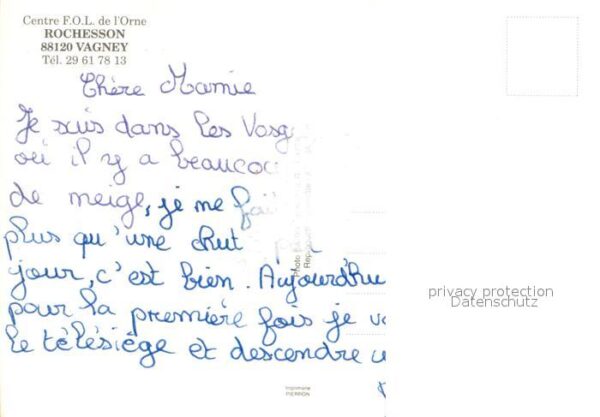 Centre F.O.L. de l'Orne
ROCHESSON
88120 VAGNEY
Tél. 29 61 78 13
Chère Mamie
Je suis dans les Vosg
où il y a beaucou
de neige, je me fai
plus qu'une chut p
jour, c'est bien. Aujourd'hu
pour la première fois je va
le télésiège et descendre u
privacy protection
Datenschutz
Imprimerie
PIERRON